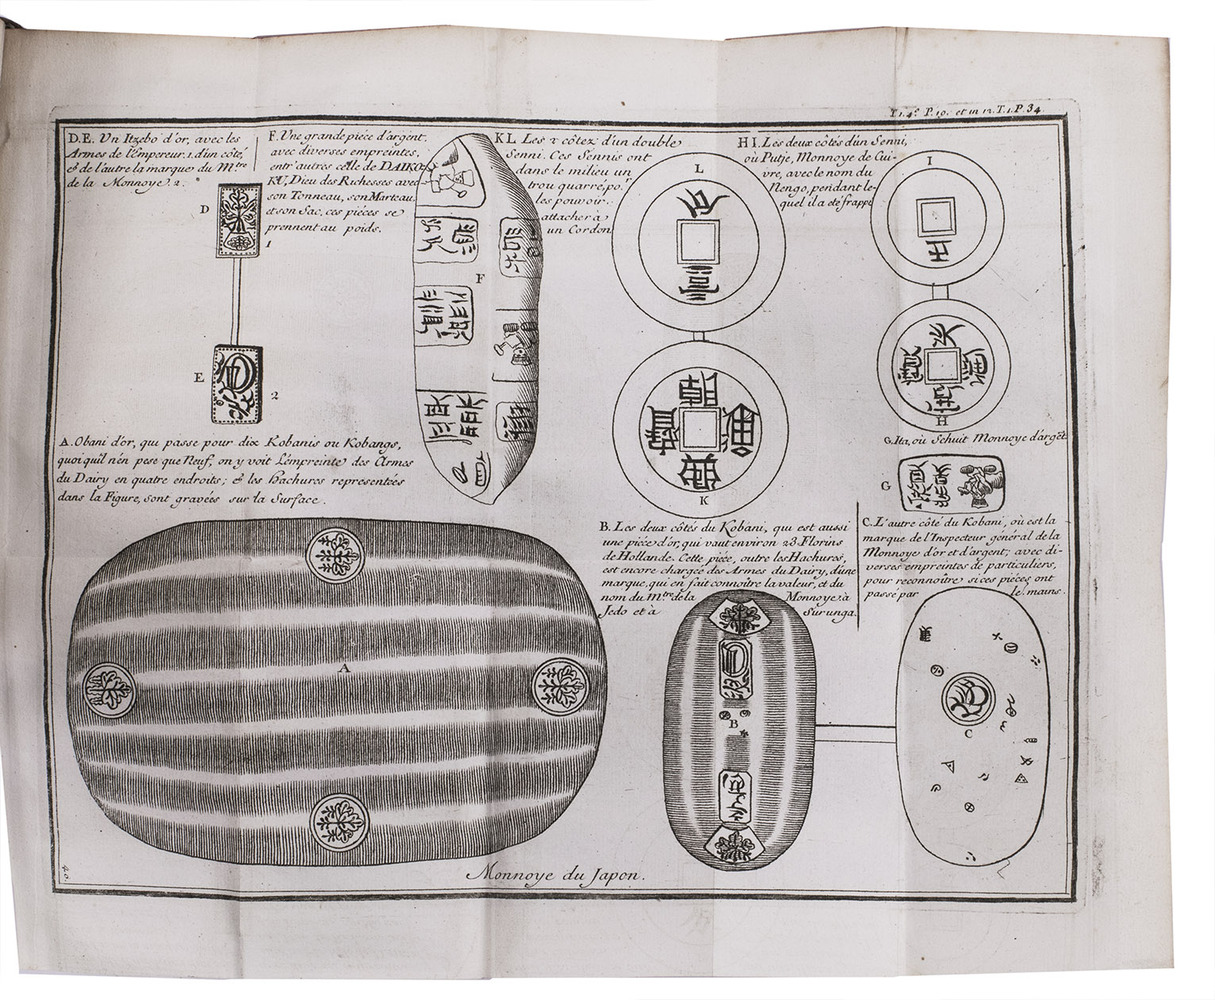 T. 1. 4.º P. 19. et in 12. T. 1. P. 34
D.E. Un Itzebo d'or, avec les
Armes de l'empereur. 1. d'un côté,
& de l'autre la marque du M.tre
de la Monnoye. 2.
D
1
E
2
F. Une grande piece d'argent,
avec diverses empreintes,
entr'autres celle de DAIKO
KU, Dieu des Richesses avec
son Tonneau, son Marteau,
et son Sac, ces pieces se
prennent au poids.
F
KL Les 2 côtez d'un double
Senni. Ces Sennis ont
dans le milieu un
trou quarré, po.r
les pouvoir
attacher à
un Cordon
L
K
HI. Les deux côtés d'un Senni,
ou Putje, Monnoye de Cui-
vre, avec le nom du
Nengo, pendant le-
quel il a eté frappé
I
H
G. Ita, où Schuit Monnoye d'argēt
G
A. Obani d'or, qui passe pour dix Kobanis ou Kobangs,
quoi qu'il n'en pese que Neuf, on y voit l'émpreinte des Armes
du Dairy en quatre endroits; & les Hachures representées
dans la Figure, sont gravées sur la Surface.
A
B. Les deux côtés du Kobani, qui est aussi
une piéce d'or, qui vaut environ 23 Florins
de Hollande. Cette piéce, outre les Hachures,
est encore chargée des Armes du Dairy, d'une
marque, qui en fait connoître la valeur, et du
nom du M.tre de la Monnoye à
Jedo et à Surunga.
B
C. L'autre côté du Kobani, où est la
marque de l'Inspecteur général de la
Monnoye d'or et d'argent; avec di-
verses empreintes de particuliers,
pour reconnoitre si ces piéces ont
passé par le.s mains.
C
Monnoye du Japon.